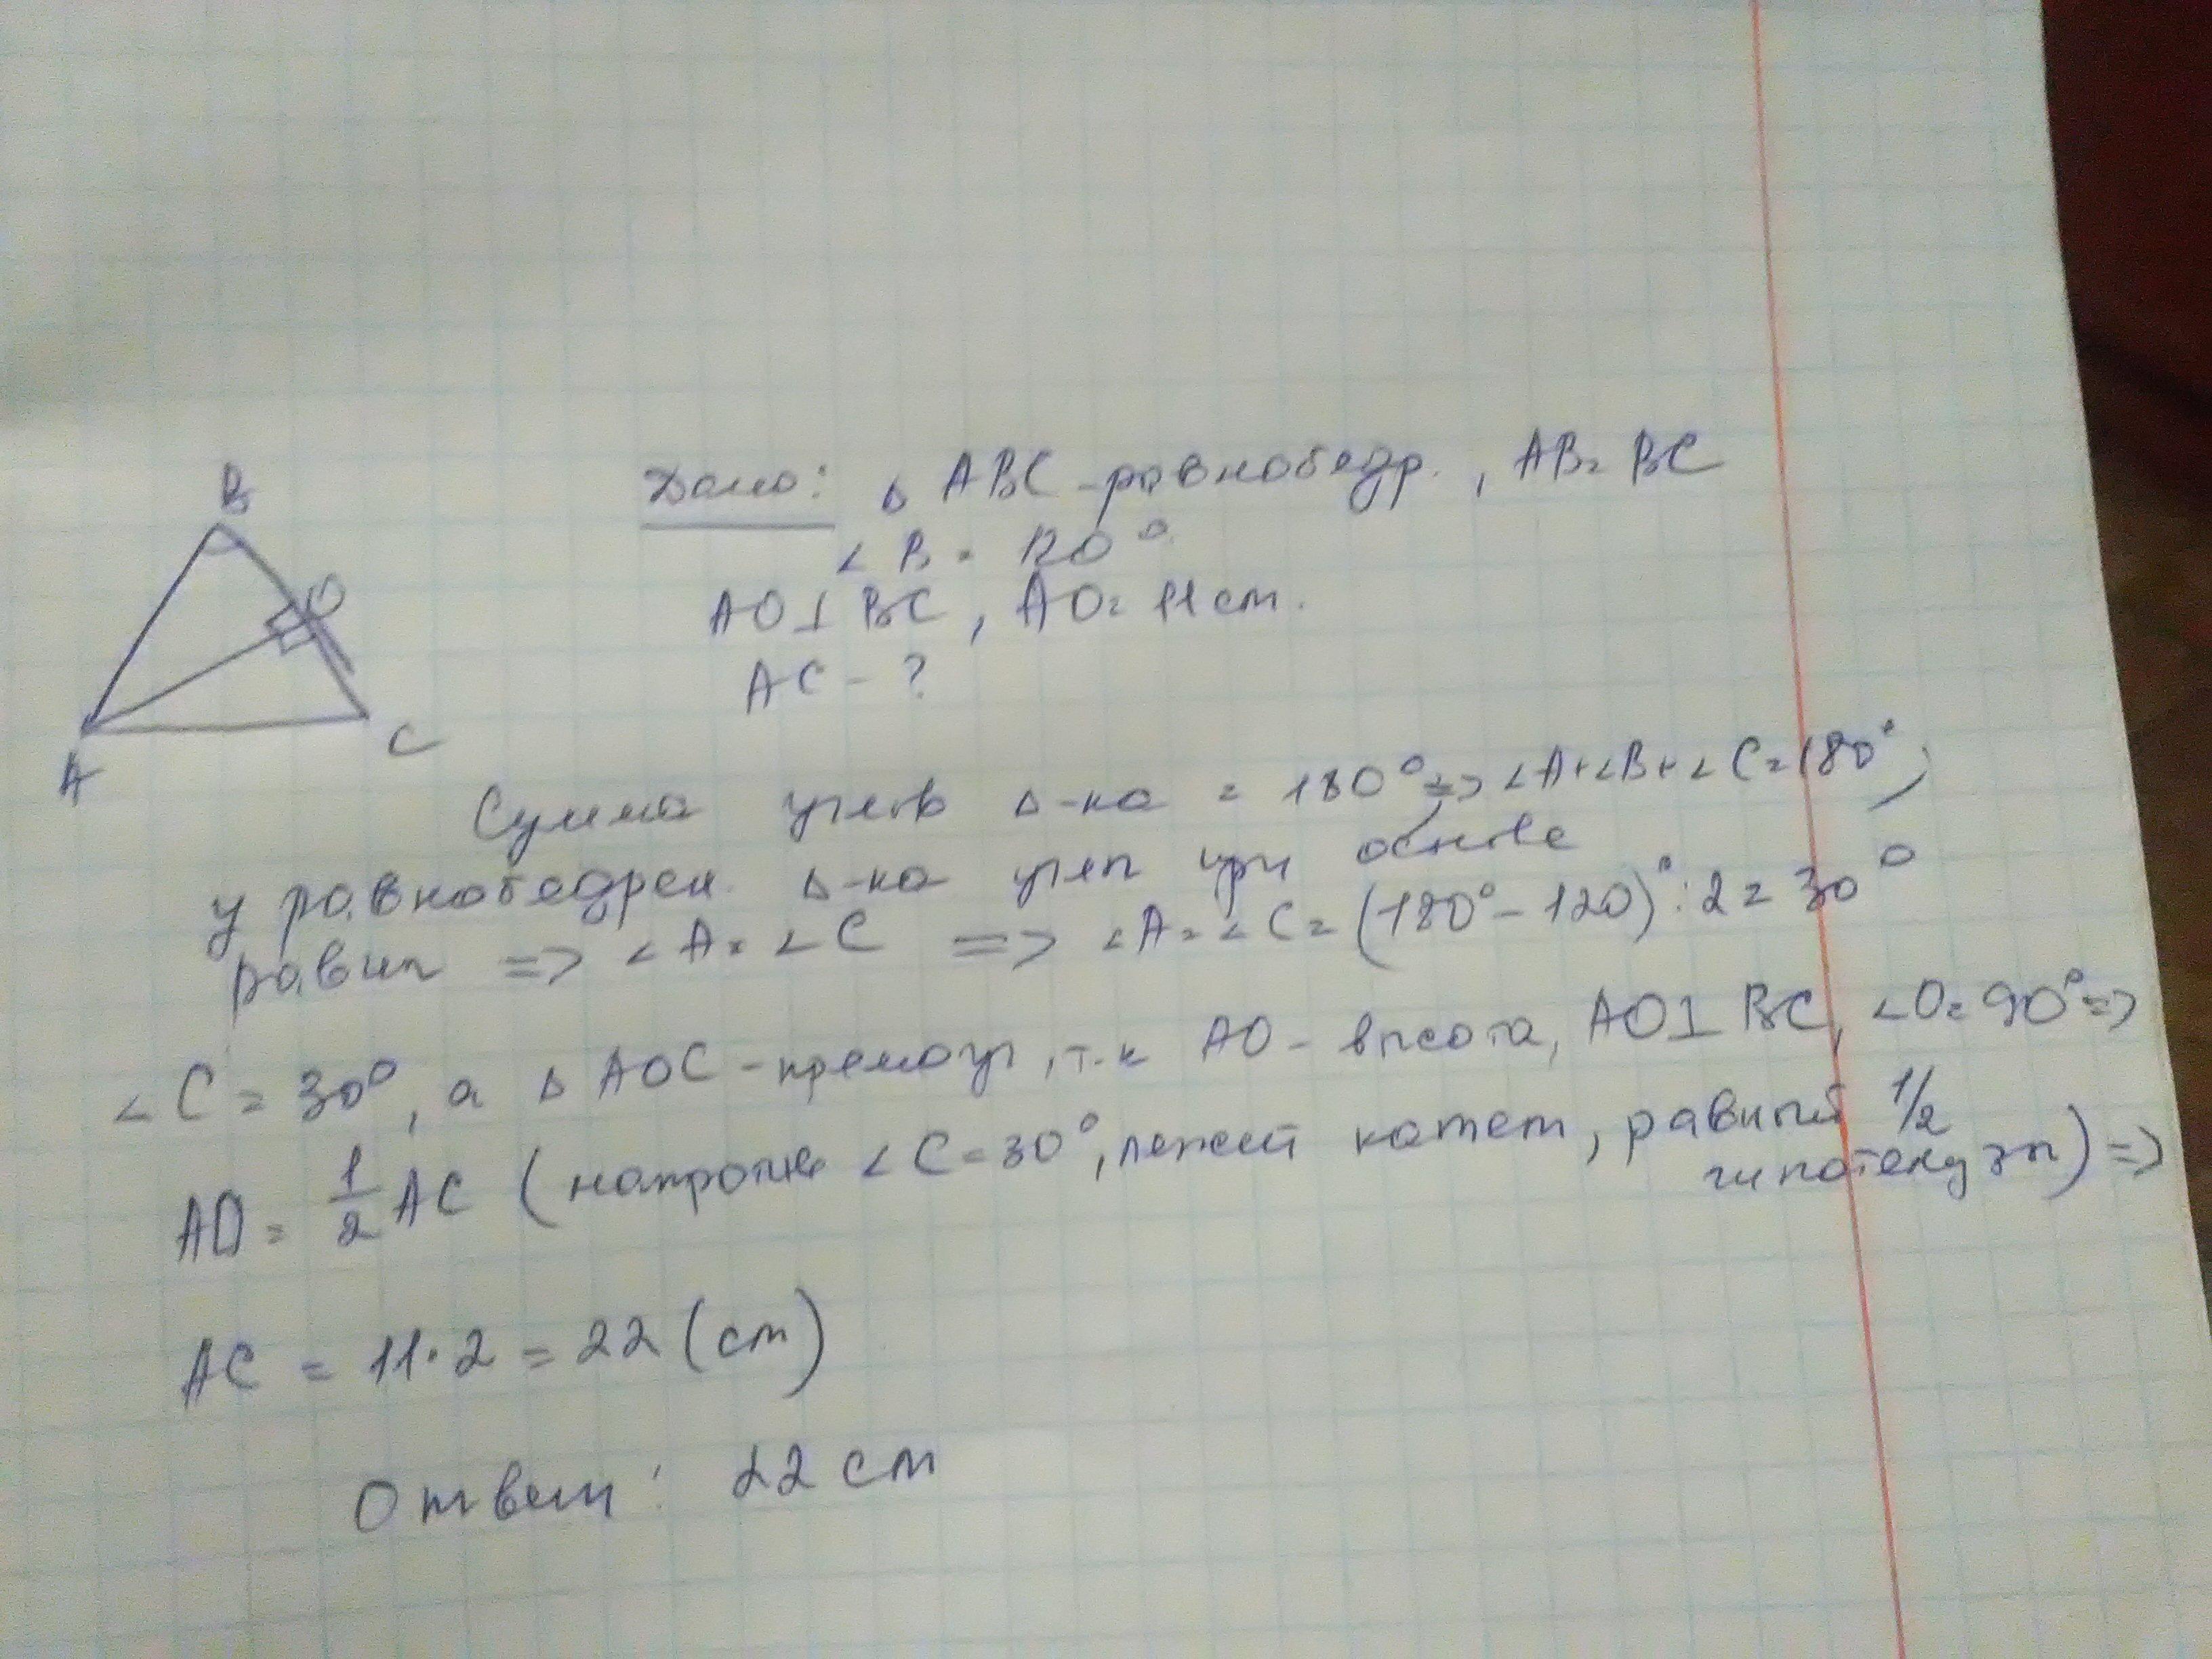 B
O
A
C
Дано: △ ABC - равнобедр., AB = BC
∠ B = 120°
AO ⊥ BC, AO = 11 см.
AC - ?
Сумма углов △-ка = 180° => ∠A+∠B+∠C=180°,
у равнобедрен. △-ка угл при основе
равны => ∠A = ∠C => ∠A = ∠C = (180° - 120)° : 2 = 30°
∠C = 30°, а △ AOC - прямоуг, т.к AO - высота, AO ⊥ BC, ∠O = 90° =>
AO = 1/2 AC (напротив ∠C = 30°, лежит катет, равный 1/2
гипотенузы) =>
AC = 11 · 2 = 22 (см)
Ответ: 22 см